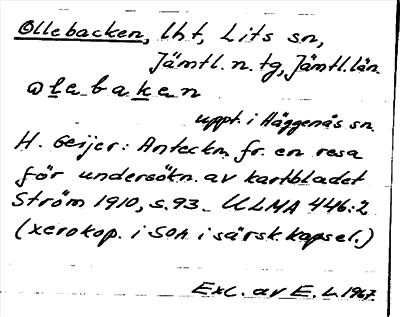 Ollebacken, lht, Lits sn,
Jämtl. n. tg, Jämtl. län.
ɷlebaken
uppt. i Häggenås sn.
H. Geijer: Anteckn. fr. en resa
för undersökn. av kartbladet
Ström 1910, s. 93. ULMA 446:2
(xerokop. i SOA i särsk. kapsel.)
Exc. av E. L. 1967.